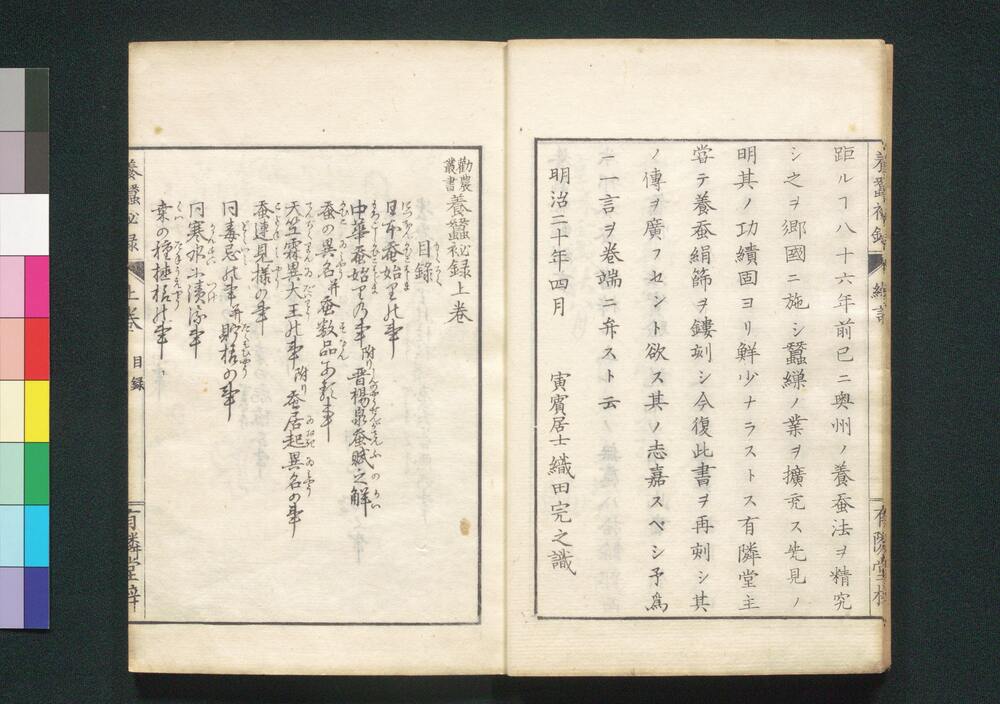 距ル﹁八十六年前已ニ奥州ノ養蚕法ヲ精究
シ之ヲ郷國ニ施シ蠶繅ノ業ヲ擴充ス先見ノ
明其ノ功績固ヨリ鮮少ナラストス有隣堂主
甞テ養蚕絹篩ヲ鏤刻シ今復此書ヲ再刻シ其
ノ傳ヲ廣フセント欲ス其ノ志嘉スベシ予為
ニ一言ヲ卷端ニ弁スト云
明治二十年四月 寅賓居士織田完之識
勸農叢書 養蠶祕録上卷
目録
日本蚕始りの事
中華蚕始りの事 附り 晋楊泉蚕賦之解
蚕の異名并蚕数品
天竺霖異大王の事 附り 蚕居起異名の事
蚕連見様の事
同毒忌の事并貯様の事
同寒水に漬る事
桑の種植様の事
養蠶祕録 上卷 目録
有隣堂梓